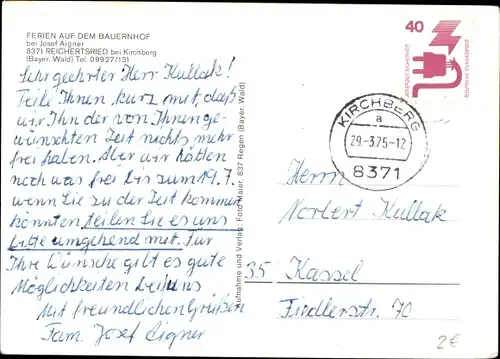 FERIEN AUF DEM BAUERNHOF
bei Josef Aigner
8371 REICHERTSRIED bei Kirchberg
(Bayer. Wald) Tel. 09927/131
Sehr geehrter Herr Kullak!
Teile Ihnen kurz mit, daß
wir in der von Ihnen ge-
wünschten Zeit nichts mehr
frei haben. Aber wir hätten
noch was frei bis zum 19.7.
wenn Sie zu der Zeit kommen
könnten, teilen Sie es uns
bitte umgehend mit. Für
Ihre Wünsche gibt es gute
Möglichkeiten bei uns
Mit freundlichen Grüßen
Fam. Josef Aigner
Aufnahme und Verlag: Foto Maier, 837 Regen (Bayer. Wald)
40
JEDERZEIT SICHERHEIT
DEUTSCHE BUNDESPOST
KIRCHBERG
a
29.-3.75-12
8371
Herrn
Norbert Kullak
35 Kassel
Fiedlerstr. 70
2€